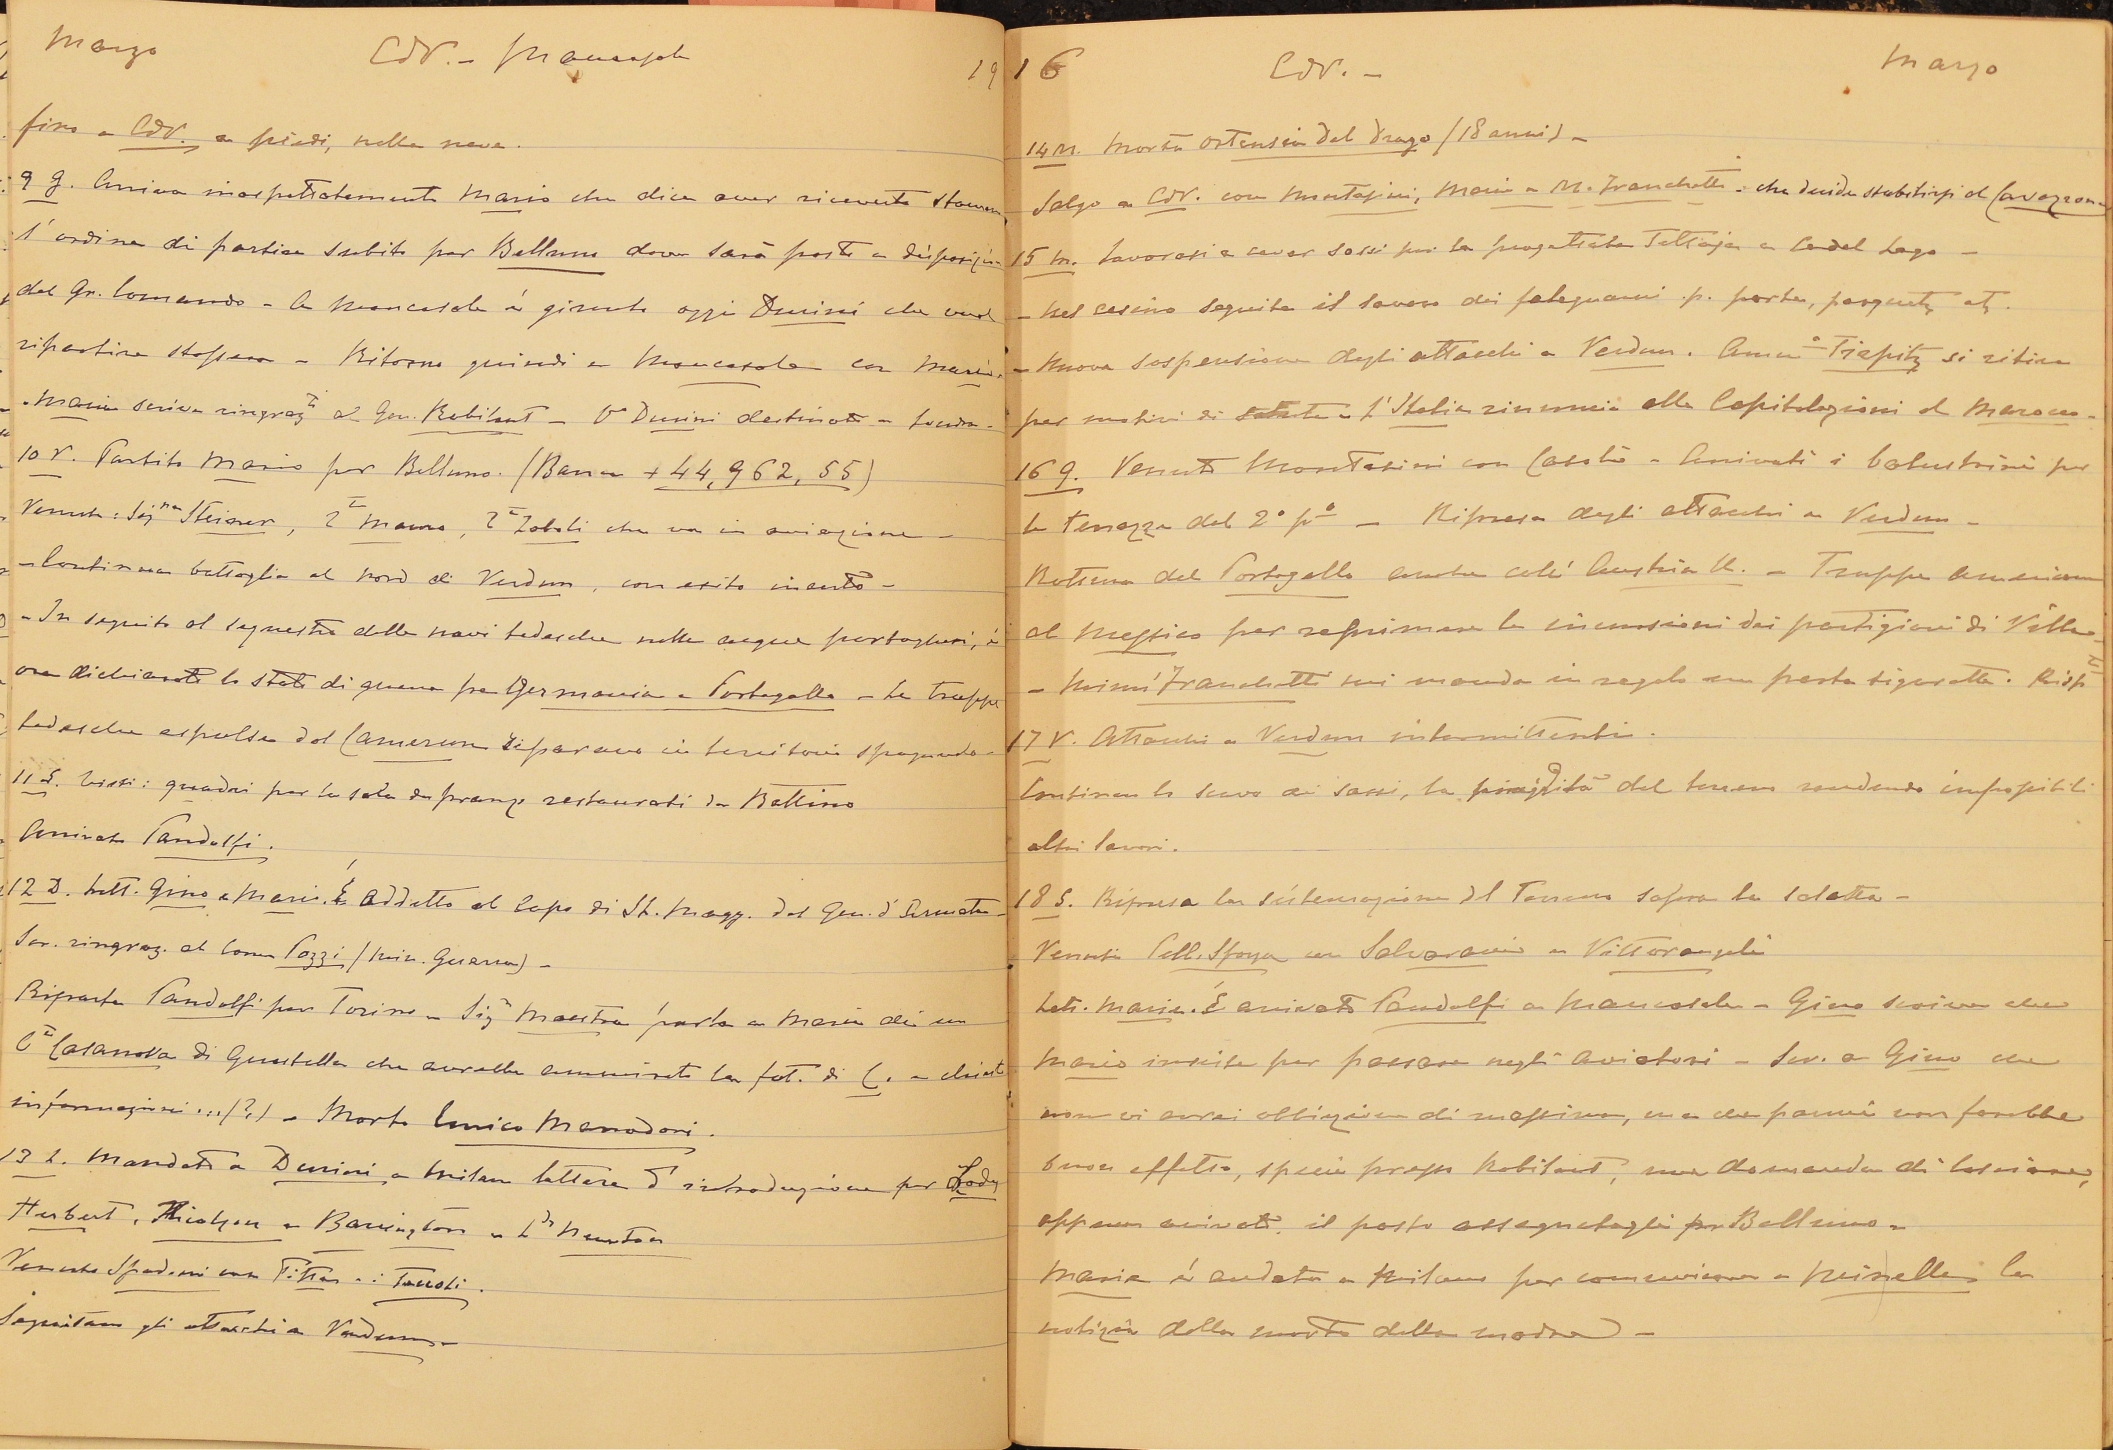 Marzo CdV. - Mancasale 19
fino a CdV. a piedi, nella neve.
9 g. Arriva inaspettatamente Mario che dice aver ricevuto stamane
l'ordine di partire subito per Belluno dove sarà posto a disposizione
del Gr. Comando - A Mancasale è giunto oggi Durini che vuol
ripartire stassera - Ritorno quindi a Mancasale con Mario.
- Maria scrive ringraz.ti al Gen. Robilant - Durini destinato a Londra -
10 V. Partito Mario per Belluno. (Banca + 44,962,55)
Venute: Sig.na Steiner, Mauro, Zoboli che va in aviazione -
- Continua battaglia al nord di Verdun, con esito incerto -
- In seguito al sequestro delle navi tedesche nelle acque portoghesi, è
ora dichiarato lo stato di guerra fra Germania e Portogallo - Le truppe
tedesche espulse dal Camerun riparano in territorio spagnuolo -
11 S. Vissi: quadri per la sala da pranzo restaurati da Bettino
Arrivato Pandolfi.
12 D. Lett. Gino e Mario. È addetto al Capo di St. Magg. del Gen. d'Armata -
Scr. ringraz. al Com Pozzi (Min. Guerra) -
Riparte Pandolfi per Torino - Sig.ra Maestri parla a Maria di un
Casanova di Guastalla che avrebbe ammirato la fot. di C. e chieste
informazioni ...(?) - Morto Enrico Manodori.
13 L. Mandato a Durini a Milano lettere d'introduzione per Lady
Herbert, Nicolson e Barrington e Newton
Venute Spadoni con Titta e i Tacoli.
Seguitano gli attacchi a Verdun -
16 CdV. - Marzo
14 M. Morta Ortensia del Drago (18 anni) -
Salgo a CdV. con Montasini, Maria e M. Franchetti - che decide stabilirsi al Cavazzone
15 M. Lavorasi a cavar sassi per la progettata Tettoja a Ca del Lago -
- Nel casino seguita il lavoro dei falegnami p. porte, parquets etz.
- Nuova sospensione degli attacchi a Verdun. Amm.o Tirpitz si ritira
per motivi di salute - L'Italia rinuncia alle Capitolazioni al Marocco -
16 g. Venuto Montasini con Casoli - Arrivati i balustrini per
la terrazza del 2° p.° - Ripresa degli attacchi a Verdun -
Rottura del Portogallo anche coll'Austria U. - Truppe americane
al Messico per reprimere le incursioni dei partigiani di Villa -
- Mimì Franchetti mi manda in regalo un porta sigarette. Risp
17 V. Attacchi a Verdun intermittenti.
Continua lo scavo di sassi, la rigidità del terreno rendendo impossibili
altri lavori.
18 S. Ripresa la sistemazione del Terreno sopra la scaletta -
Venuti Pell. Sforza con Salvarani e Vittorangeli
Lett. Maria. È arrivato Pandolfi a Mancasale - Gino scrive che
Mario insiste per passare negli aviatori - Scr. a Gino che
non vi avrei obbiezioni di massima, ma che parmi non farebbe
buon effetto, specie presso Robilant, una domanda di lasciare,
appena arrivato, il posto assegnatogli per Belluno -
Maria è andata a Milano per comunicare a Mirella la
notizia della morte della madre -